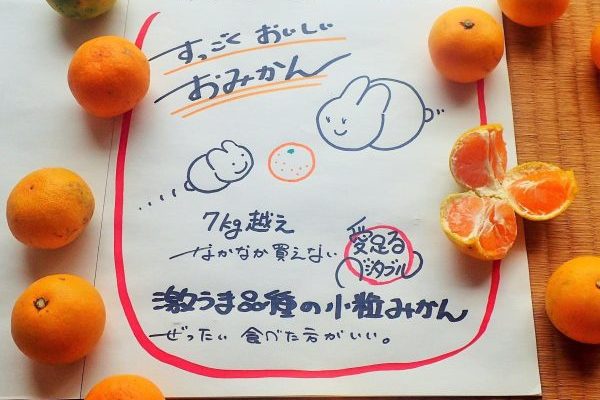 すっごく おいしい
おみかん
7kg越え
なかなか買えない
愛足る
ベジタブル
激うま品種の小粒みかん
ぜったい 食べた方がいい。